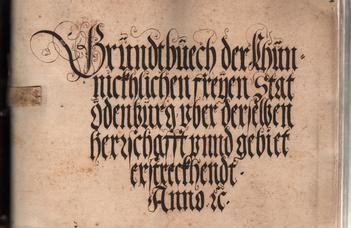 Gründtbüech der Khün-
nickhlichen freyen Stat
Ödenburg vber derselben
herrschafft vnnd gebiet
erstreckhendt.
Anno ꝛc.